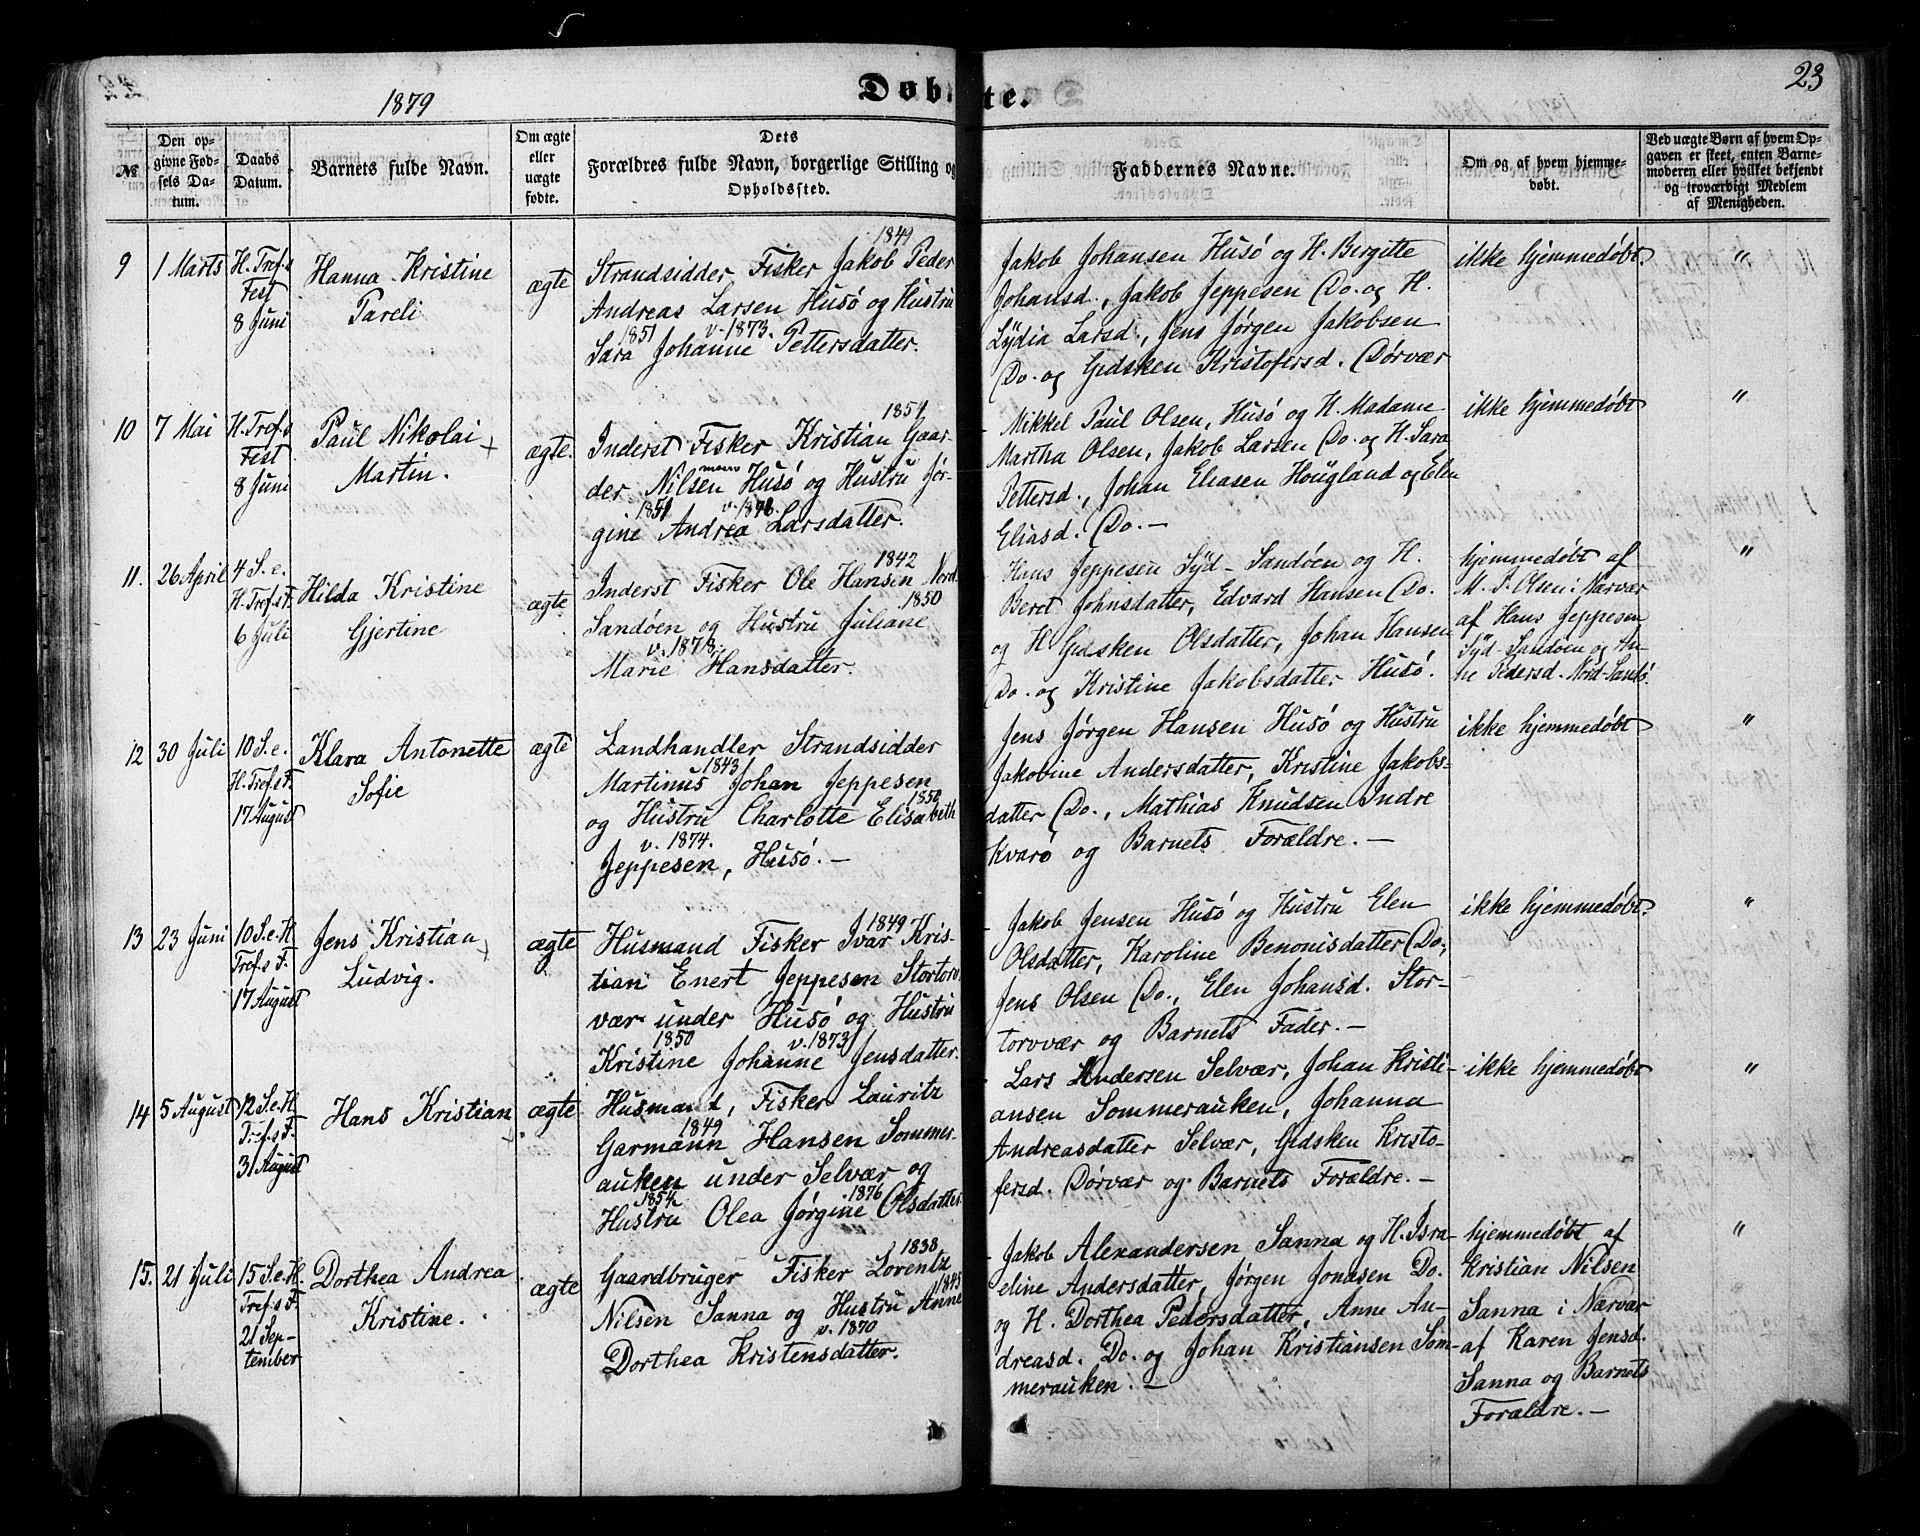 1879
Døbte.
23
№
Den op-
givne Fød-
sels Da-
tum.
Daabs
Datum.
Barnets fulde Navn.
Om ægte
eller
uægte
fødte.
Dets
Forældres fulde Navn, borgerlige Stilling og
Opholdssted.
Faddernes Navne.
Om og af hvem hjemme-
døbt.
Ved uægte Børn af hvem Op-
gaven er skeet, enten Barne-
moderen eller hvilket bekjendt
og troværdigt Medlem
af Menigheden.
9
1 Marts
H. Tref.s
Fest
8 Juni
Hanna Kristine
Pareli
ægte
1849
Strandsidder Fisker Jakob Peder
Andreas Larsen Husö og Hustru
1851 v. 1873.
Sara Johanne Pettersdatter.
Jakob Johansen Husö og H. Birgitte
Johansd., Jakob Jeppesen Do. og H.
Lÿdia Larsd., Jens Jørgen Jakobsen
Do. og Gidsken Kristofersd. Dørvær
ikke hjemmedøbt.
"
10
7 Mai
H. Tref.s
Fest
8 Juni
Paul Nikolai
Martin.
ægte.
1851
Inderst Fisker Kristian Gaar-
der Nilsen Husö og Hustru Jør-
1851
gine Andrea Larsdatter.
Mikkel Paul Olsen, Husö og H. Madame
Martha Olsen, Jakob Larsen Do. og H. Sara
Pettersd., Johan Eliasen Hougland og Elen
Eliasd. Do. —
ikke hjemmedøbt
"
11.
26 April
4 S. e.
H. Tref.s F.
6 Juli
Hilda Kristine
Gjertine
ægte
1842
Inderst Fisker Ole Hansen Nord-
1850
Sandøen og Hustru Juliane
v. 1878.
Marie Hansdatter.
Hans Jeppesen Sÿd-Sandøen og H.
Beret Johnsdatter, Edvard Hansen Do.
og H. Gidsken Olsdatter, Johan Hansen
Do. og Kristine Jakobsdatter Husö.
hjemmedøbt af
M. P. Olsen i Nærvær
af Hans Jeppesen
Sÿd-Sandøen og An-
ne Pedersd. Nord-Sandö.
"
12
30 Juli
10 S. e.
H. Tref.s F.
17 August
Klara Antonette
Sofie
ægte
Landhandler Strandsidder
1843
Martinus Johan Jeppesen
1850
og Hustru Charlotte Elisabeth
v. 1874.
Jeppesen, Husö. —
Jens Jørgen Hansen Husö og Hustru
Jakobine Andersdatter, Kristine Jakobs-
datter Do., Mathias Knudsen Indre
Kvarö og Barnets Forældre. —
ikke hjemmedøbt
"
13
23 Juni
10 S. e. H
Tref.s F.
17 August
Jens Kristian
Ludvig.
ægte
1849
Husmand Fisker Ivar Kris-
tian Enert Jeppesen Stortorv-
vær under Husö og Hustru
1850 v. 1873
Kristine Johanne Jensdatter.
Jakob Jensen Husö og Hustru Elen
Olsdatter, Karoline Benonisdatter Do.,
Jens Olsen Do., Elen Johansd. Stor-
torvvær og Barnets Fader. —
ikke hjemmedøbt.
"
14
5 August
12 S. e. H
Tref.s F.
31 August
Hans Kristian
ægte
Husmand, Fisker Lauritz
1849
Garmann Hansen Sommer-
auken under Selvær og
1854 1876
Hustru Olea Jørgine Olsdatter
Lars Andersen Selvær, Johan Kristi-
ansen Sommerauken, Johanna
Andreasdatter Selvær, Gidsken Kristo-
fersd. Dørvær og Barnets Forældre. —
ikke hjemmedøbt
"
15.
21 Juli
15 S. e. H.
Tref.s F.
21 Sep-
tember
Dorthea Andrea
Kristine.
ægte
1838
Gaardbruger Fisker Lorentz
1845
Nilsen Sanna og Hustru Anne
v. 1870
Dorthea Kristensdatter.
Jakob Alexandersen Sanna og H. Isra-
eline Andersdatter, Jørgen Jonasen Do.
og H. Dorthea Pedersdatter, Anne An-
dreasd. Do. og Johan Kristiansen Som-
merauken. —
hjemmedøbt af
Kristian Nilsen
Sanna i Nærvær
af Karen Jensd.
Sanna og Barnets
Forældre. —
"